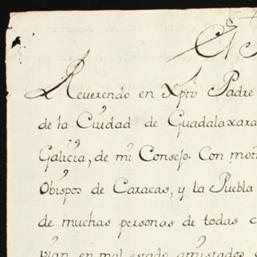 El
Reuerendo en Xpto Padre
de la Ciudad de Guadalaxara
Galicia, de mi Consejo. Con moti
Obispos de Caracas, y la Puebla
de muchas personas de todas c
vian en mal estado amistados